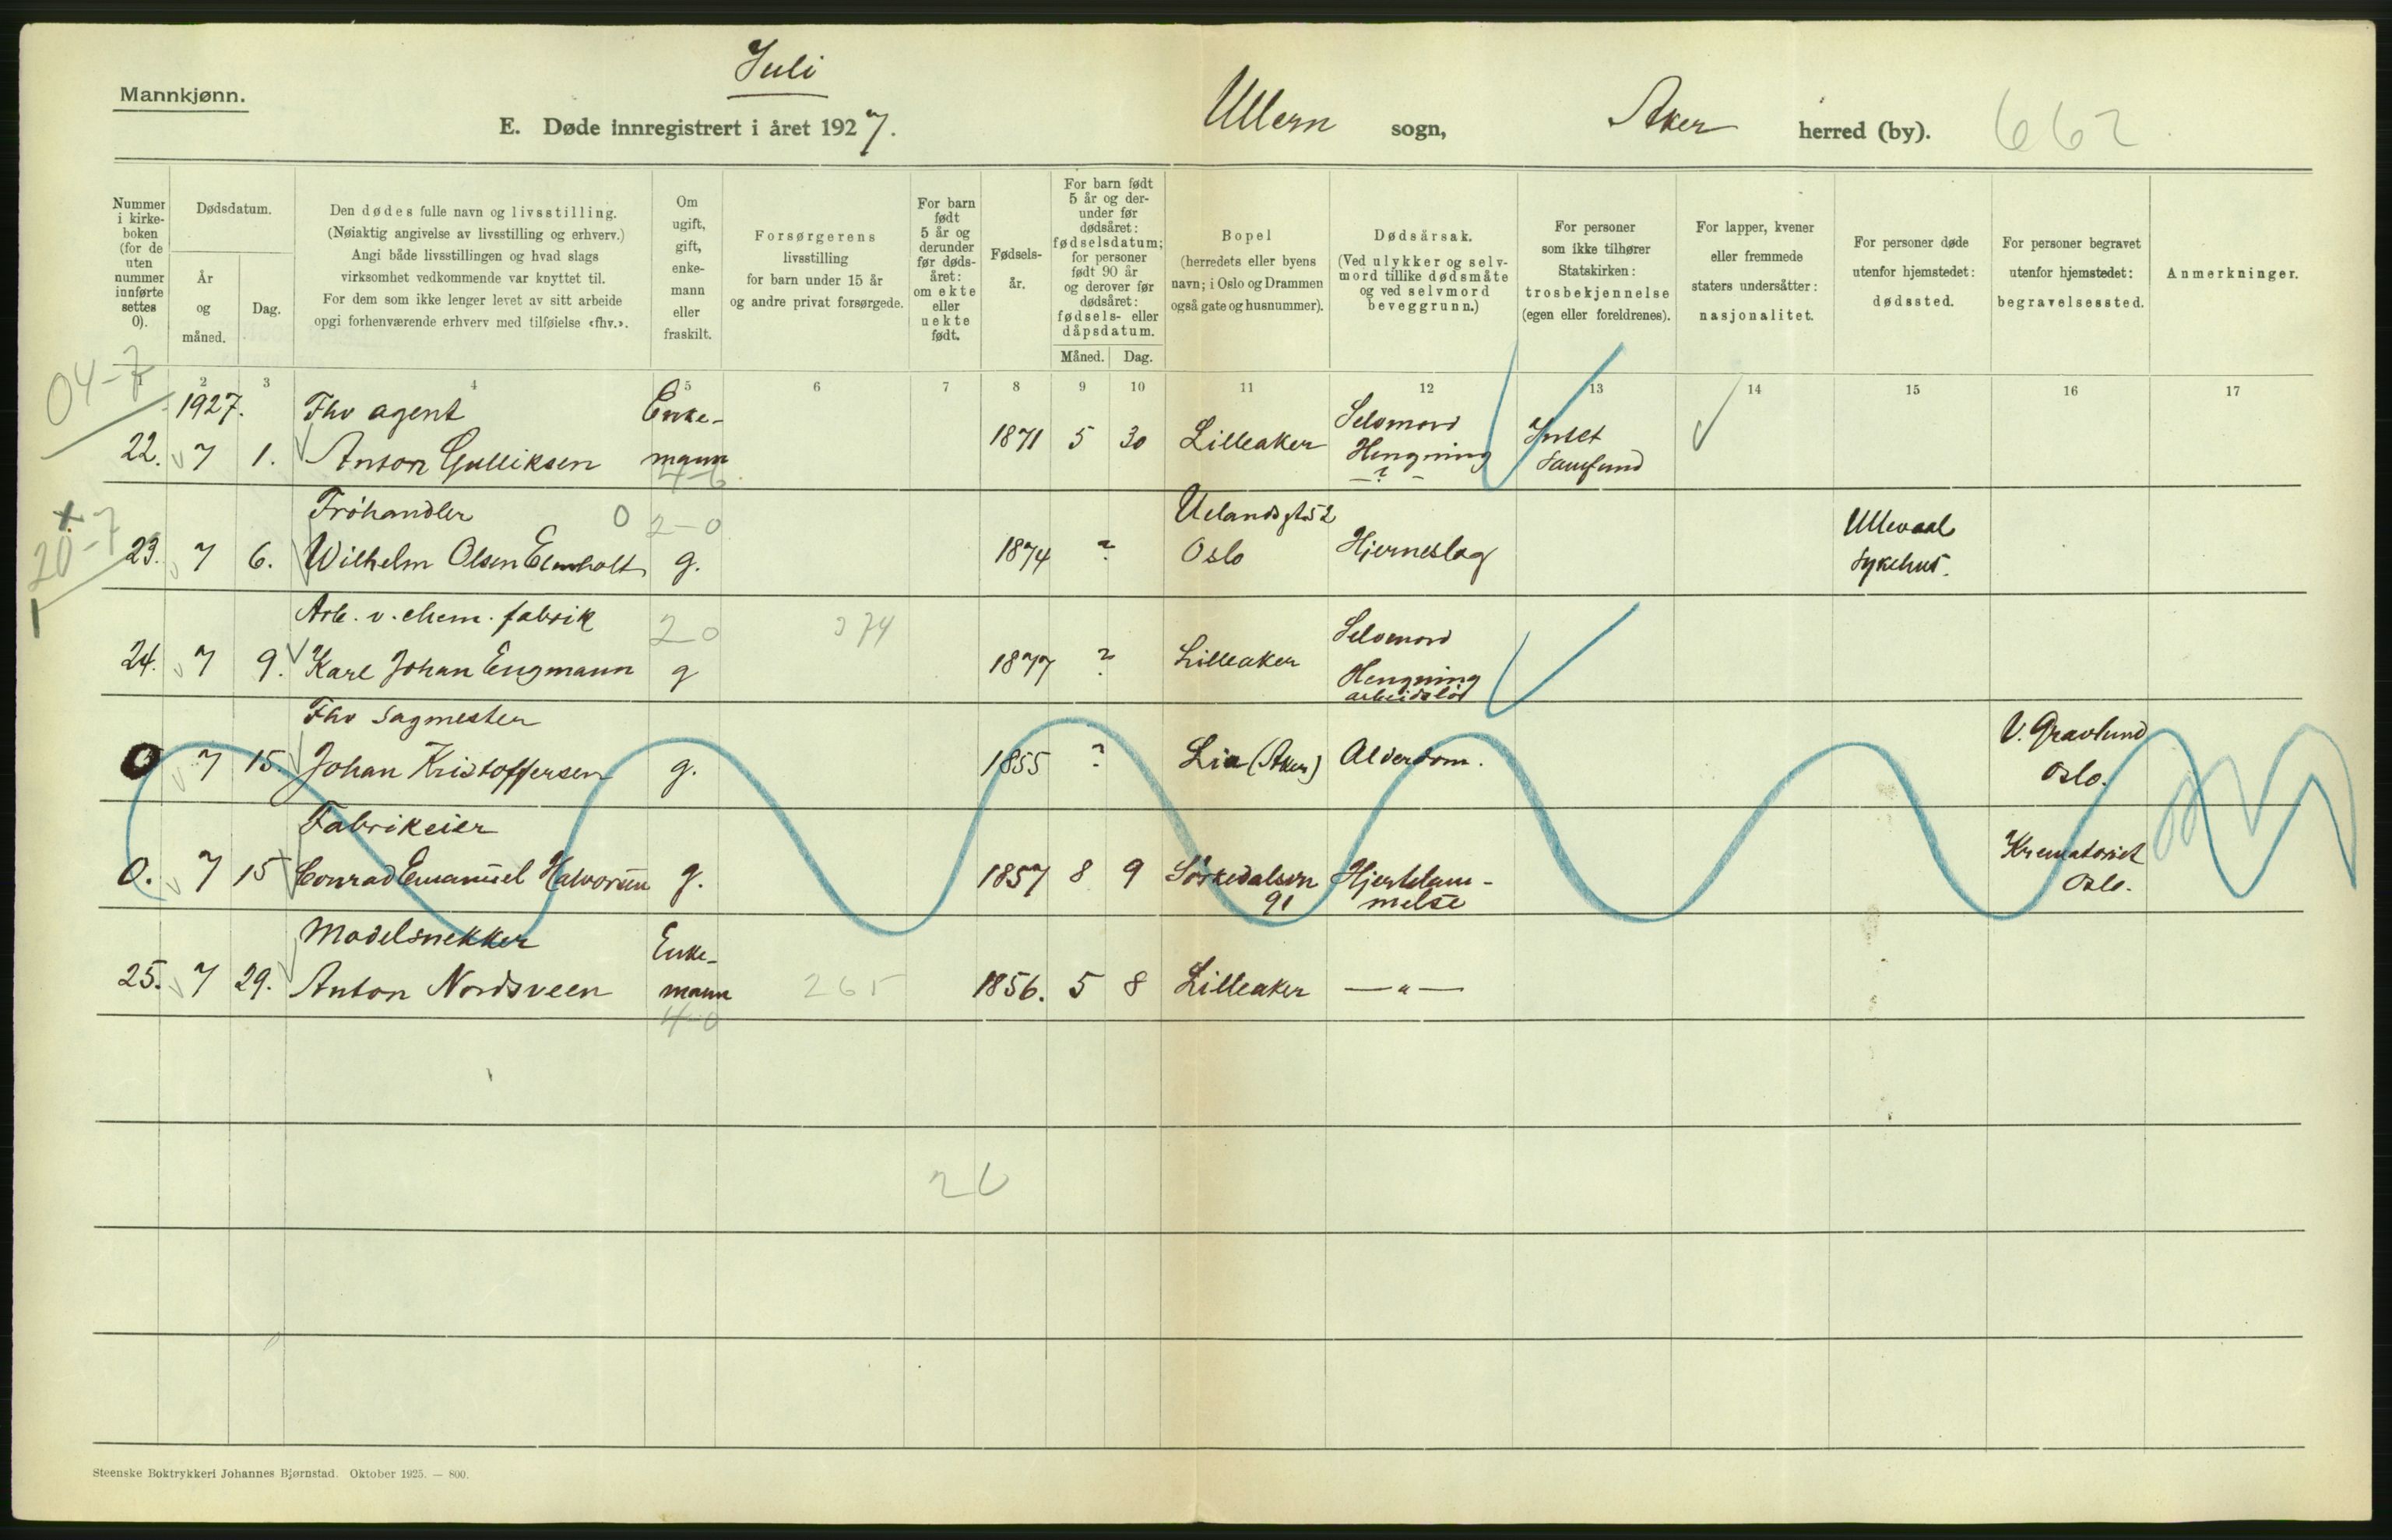 Juli
Mannkjønn.
E. Døde innregistrert i året 1927.
Ullern sogn, Aker herred (by). 662
Nummer i kirke-boken (for de uten nummer innførte settes 0).
Dødsdatum.
År og måned.
Dag.
Den dødes fulle navn og livsstilling.
(Nøiaktig angivelse av livsstilling og erhverv.)
Angi både livsstillingen og hvad slags
virksomhet vedkommende var knyttet til.
For dem som ikke lenger levet av sitt arbeide
opgi forhenværende erhverv med tilføielse «fhv.».
Om ugift, gift, enke-mann eller fraskilt.
Forsørgerens
livsstilling
for barn under 15 år
og andre privat forsørgede.
For barn født 5 år og derunder før døds-året: om ekte eller uekte født.
Fødsels-år.
For barn født 5 år og der-under før dødsåret: fødselsdatum; for personer født 90 år og derover før dødsåret: fødsels- eller dåpsdatum.
Måned. Dag.
Bopel
(herredets eller byens
navn; i Oslo og Drammen
også gate og husnummer).
Dødsårsak.
(Ved ulykker og selv-
mord tillike dødsmåte
og ved selvmord
beveggrunn.)
For personer
som ikke tilhører
Statskirken:
trosbekjennelse
(egen eller foreldrenes).
For lapper, kvener
eller fremmede
staters undersåtter:
nasjonalitet.
For personer døde
utenfor hjemstedet:
dødssted.
For personer begravet
utenfor hjemstedet:
begravelsessted.
Anmerkninger.
1 2 3 4 5 6 7 8 9 10 11 12 13 14 15 16 17
04-7
1927. Fhv agent Enke- Selvmord Intet
22. 7 1. Anton Gulliksen mann 1871 5 30 Lilleaker Hengning Samfund
4-6 - ? -
Frøhandler 0 2-0 Uelandsgt 52 Ullevaal
20-7
23. 7 6. Wilhelm Olsen Elmholt g. 1874 ? Oslo Hjerneslag Sykehus.
Arb. v. chem. fabrik 20 374 Selvmord
24. 7 9. Karl Johan Engmann g 1877 ? Lilleaker Hengning
arbeidsløs
Fhv Sagmester V. Gravlund
0 7 15. Johan Kristoffersen g. 1855 ? Lia (Aker) Alderdom. Oslo.
Fabrikeier Krematoriet
0. 7 15 Conrad Emanuel Halvorsen g. 1857 8 9 Sørkedalsvn Hjertelam- Oslo.
91 melse
Modelsnekker Enke-
25. 7 29. Anton Nordsveen mann 265 1856. 5 8 Lilleaker — " —
4-0
Steenske Boktrykkeri Johannes Bjørnstad. Oktober 1925. — 800.